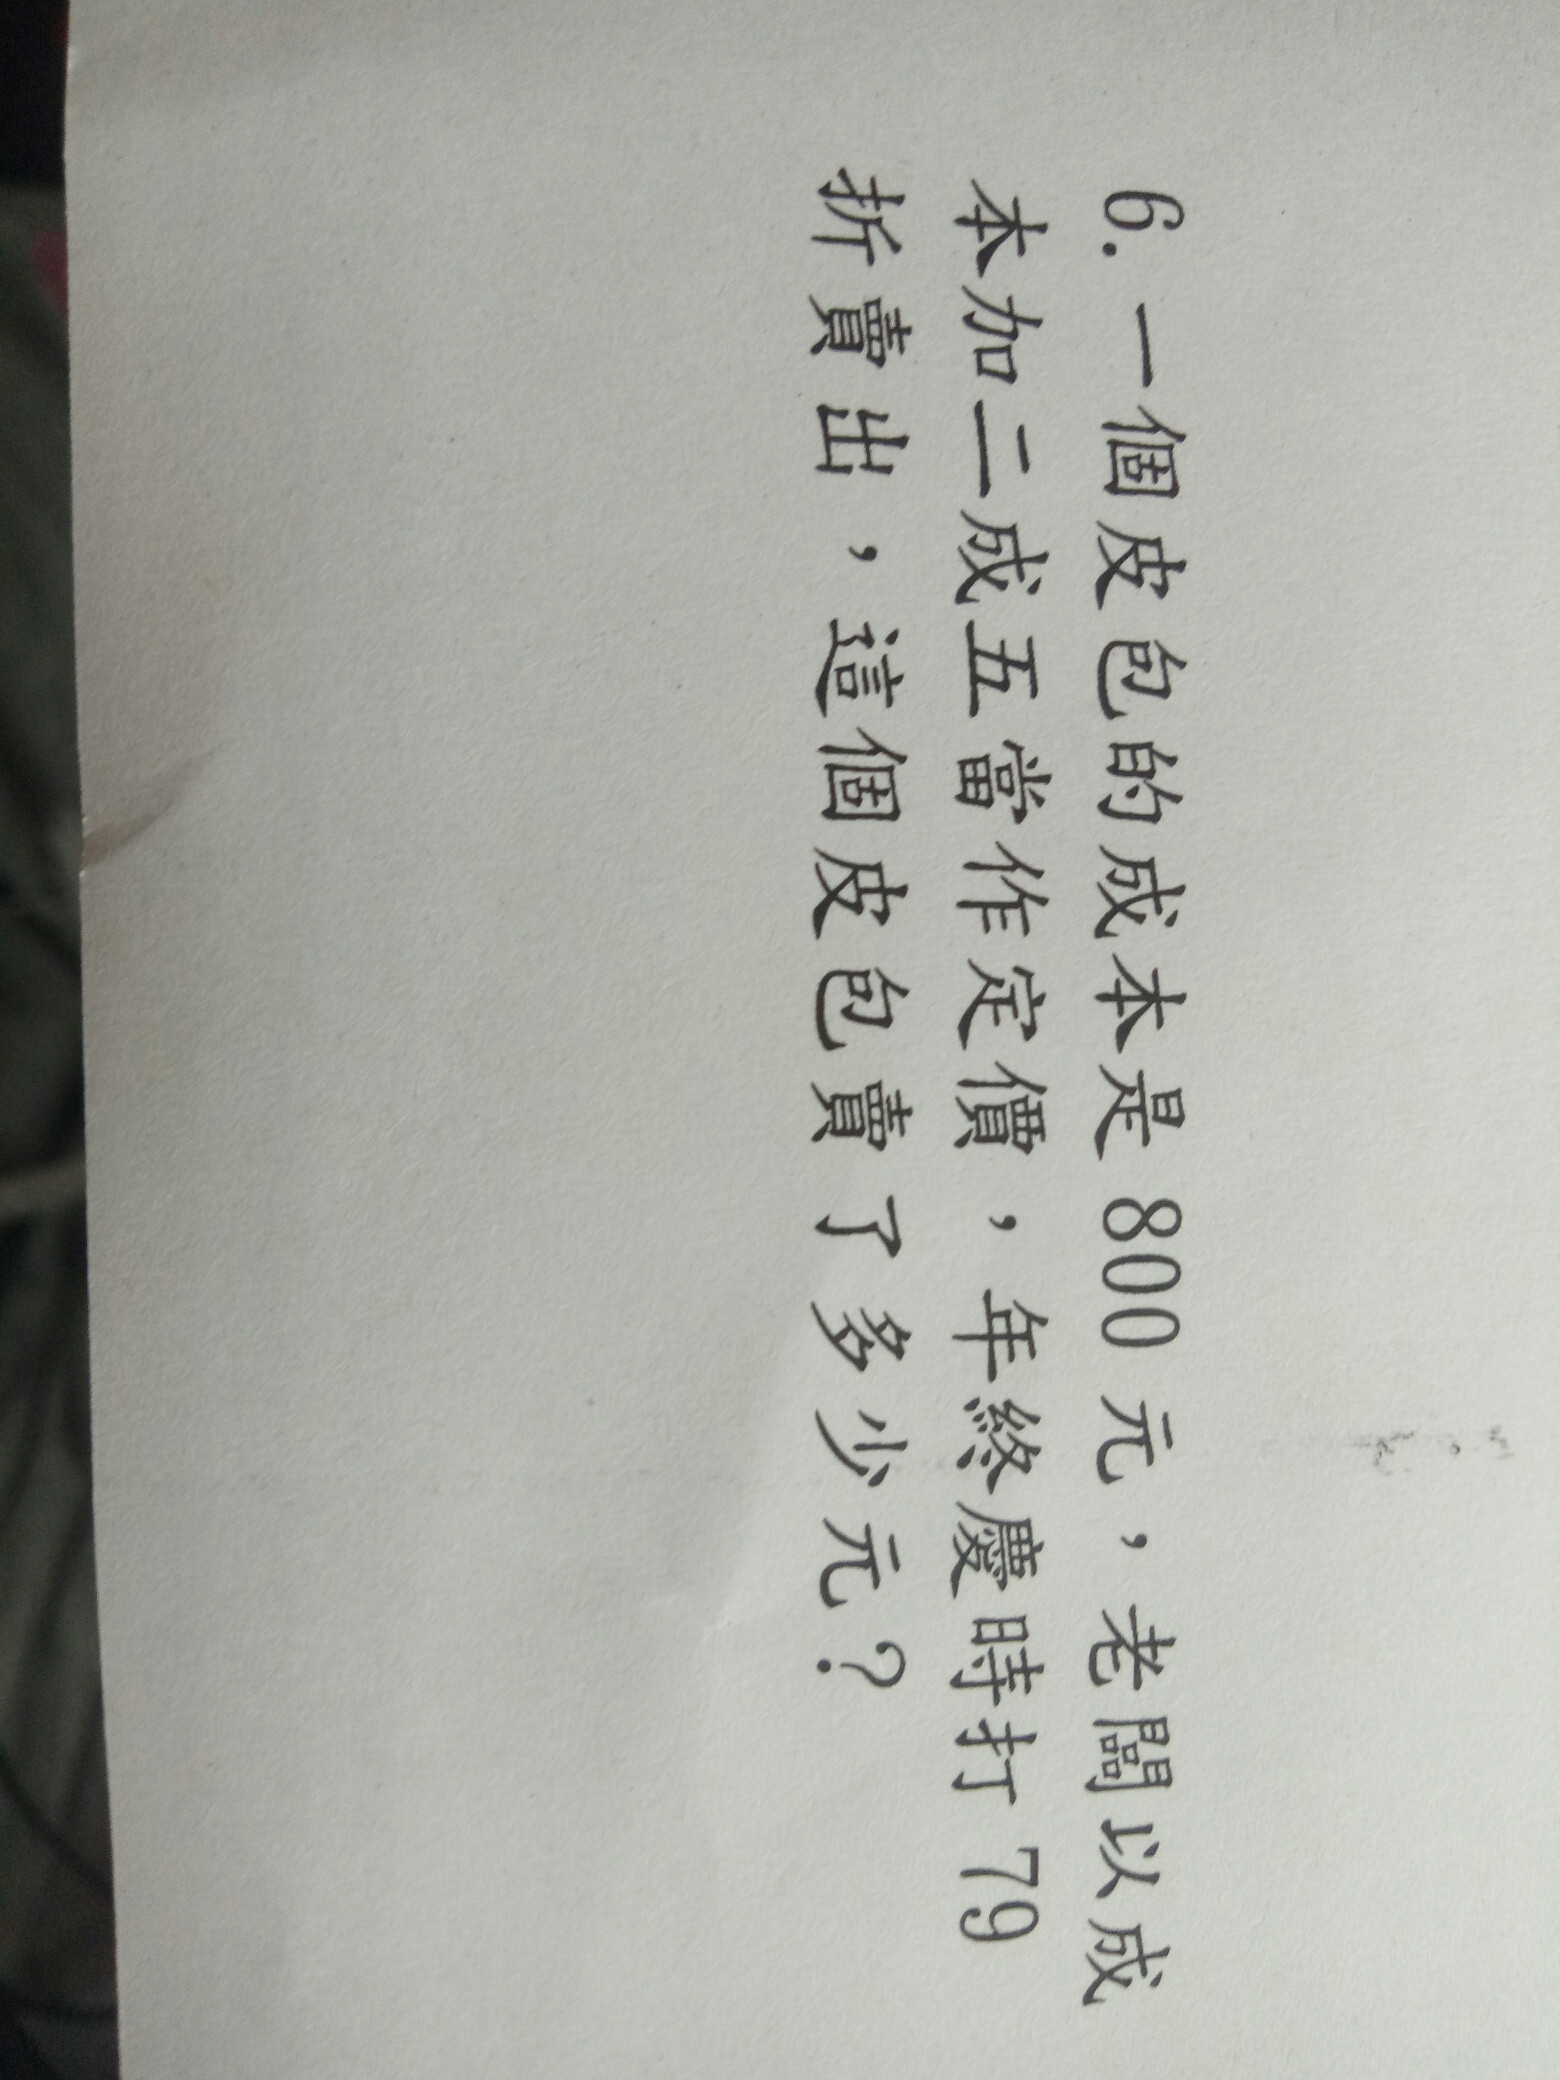 6. 一個皮包的成本是 800 元，老闆以成
本加二成五當作定價，年終慶時打 79
折賣出，這個皮包賣了多少元？